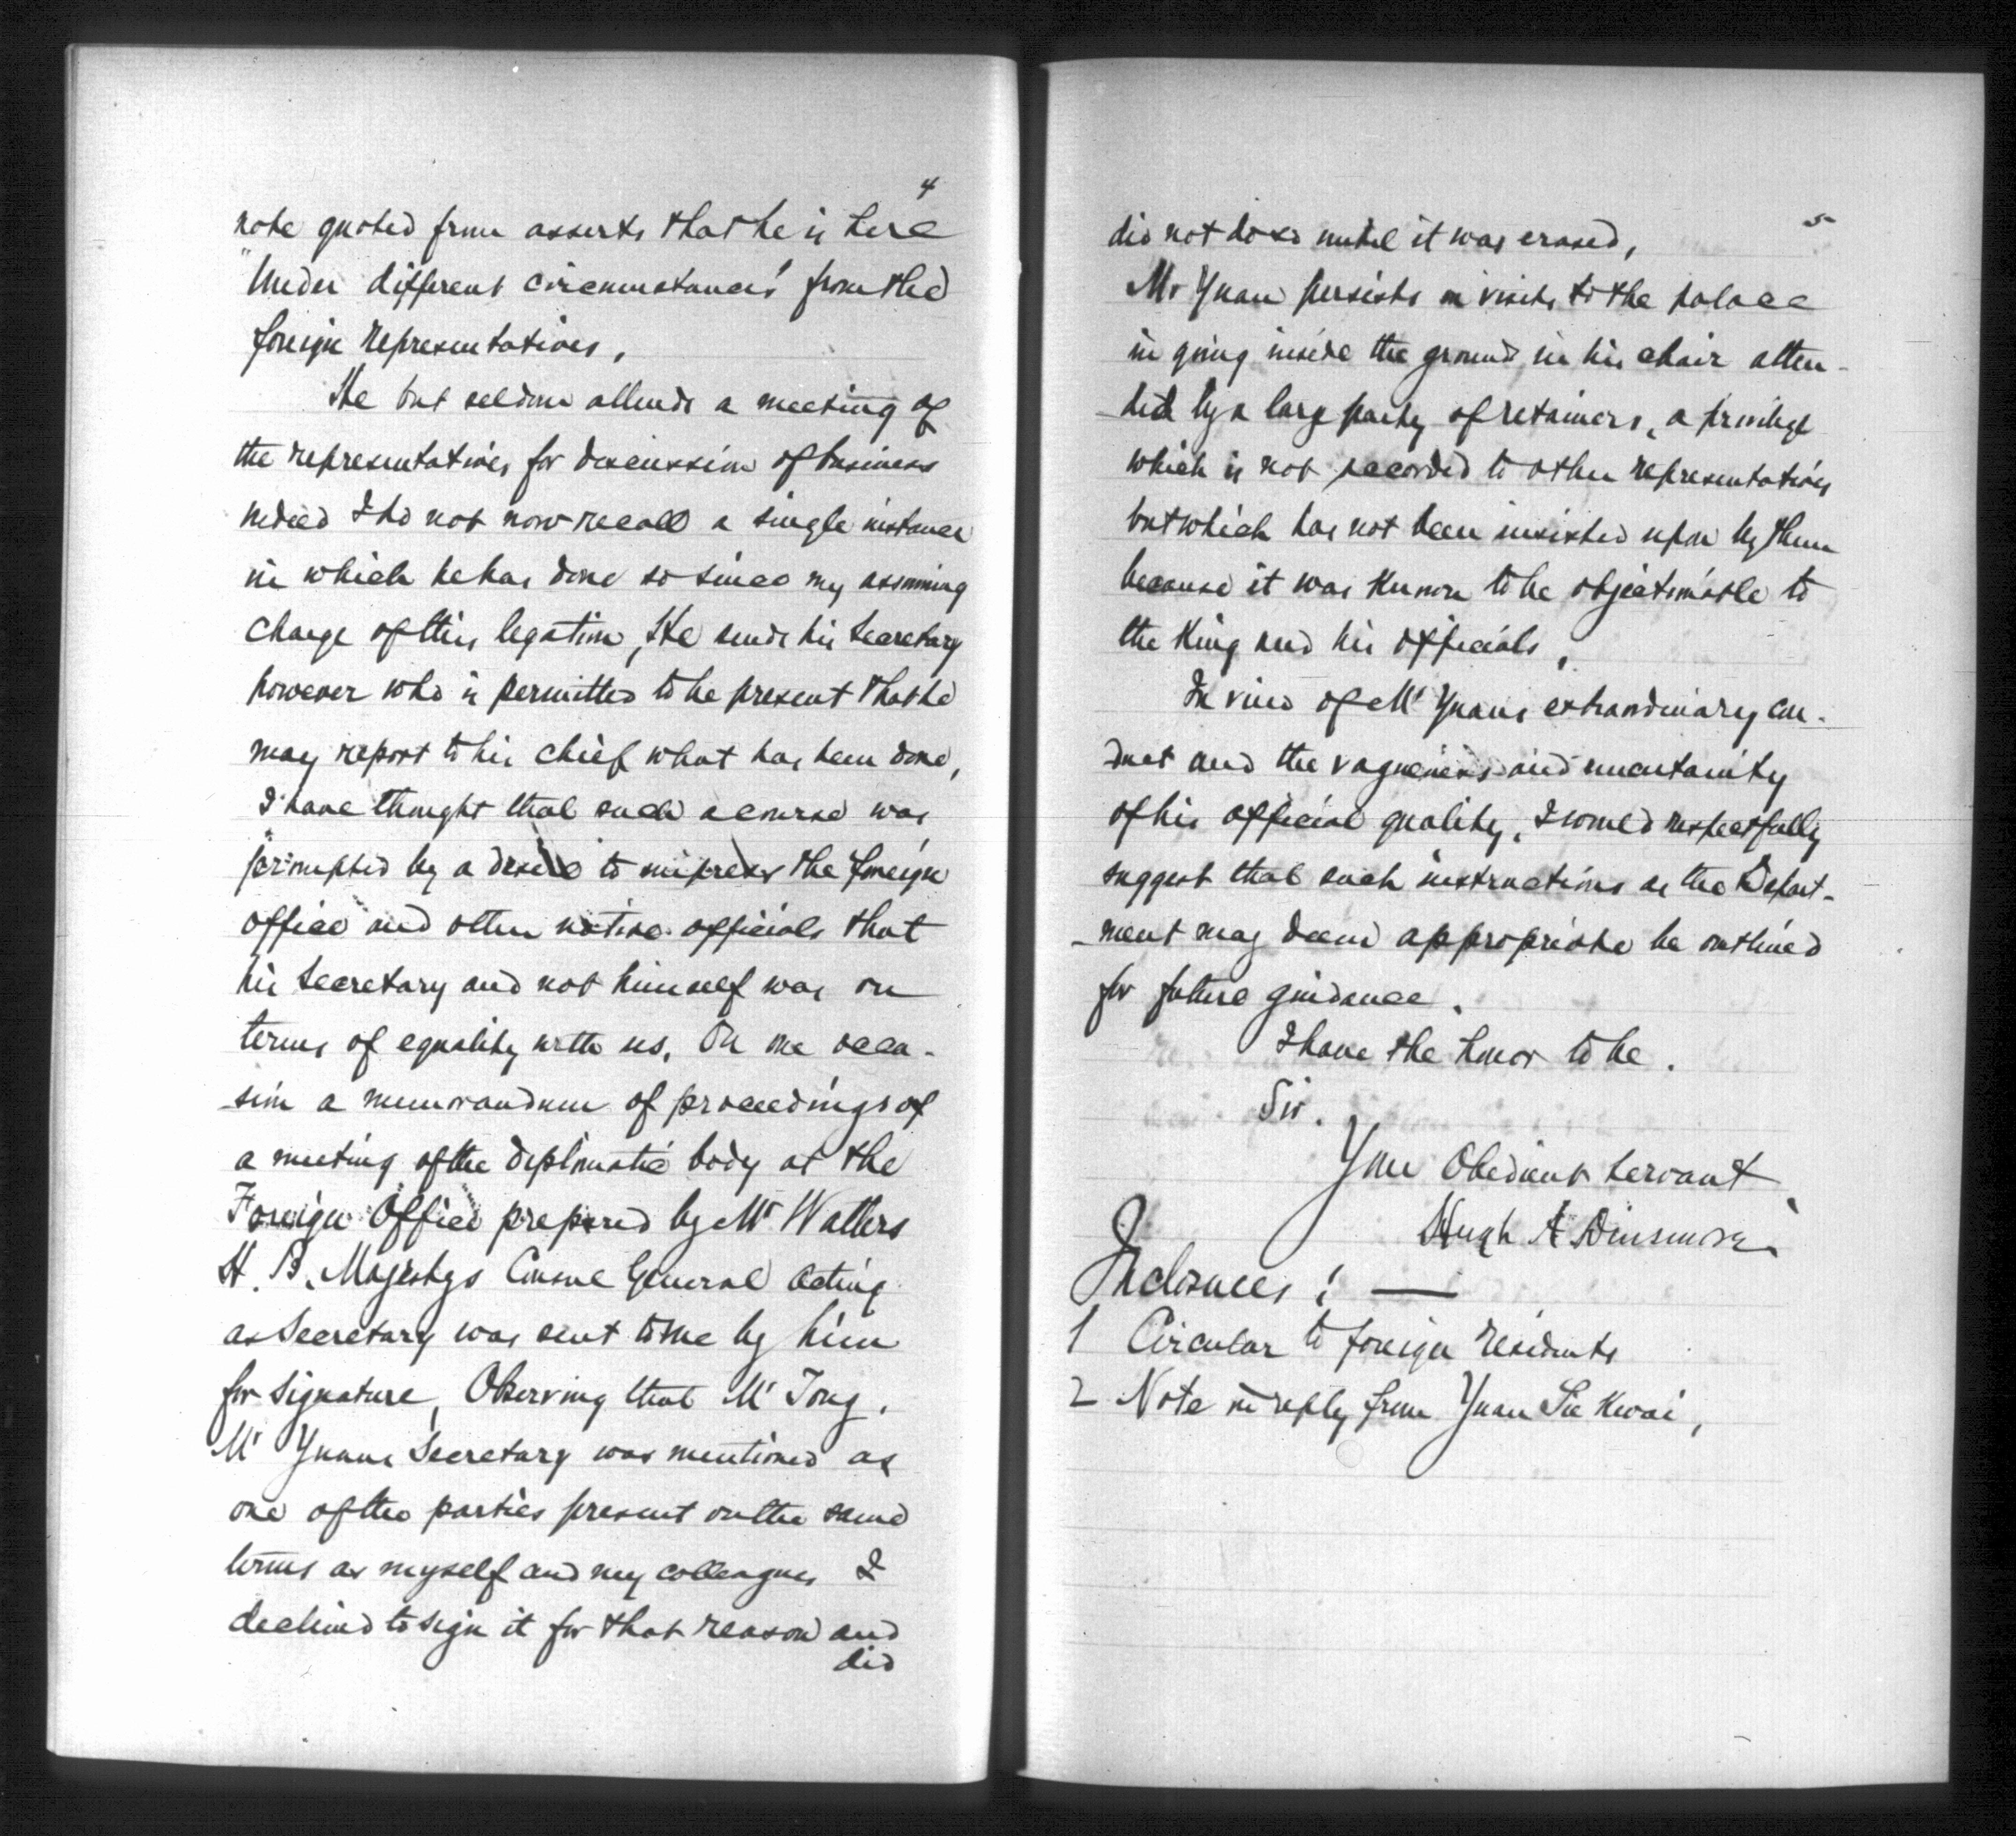 4
note quoted from asserts that he is here
"Under different circumstances" from the
foreign representatives.
He but seldom attends a meeting of
the representatives for discussion of business
indeed I do not now recall a single instance
in which he has done so since my assuming
charge of this legation, He sends his Secretary
however who is permitted to be present that he
may report to his chief what has been done,
I have thought that such a course was
prompted by a desire to impress the foreign
office and other native officials that
his Secretary and not himself was on
terms of equality with us. On one occa-
-sion a memorandum of proceedings of
a meeting of the diplomatic body at the
Foreign Office prepared by Mr Watters
H. B. Majestys Consul General acting
as Secretary was sent to me by him
for signature, Observing that Mr Tong,
Mr Yuans Secretary was mentioned as
one of the parties present on the same
terms as myself and my colleagues I
declined to sign it for that reason and
did
5
did not do so until it was erased,
Mr Yuan persists on visits to the palace
in going inside the grounds in his chair atten-
-ded by a large party of retainers, a privilege
which is not accorded to other representatives
but which has not been insisted upon by them
because it was known to be objectionable to
the King and his officials,
In view of Mr Yuans extraordinary con-
duct and the vagueness and uncertainity
of his official quality, I would respectfully
suggest that such instructions as the Depart-
-ment may deem appropriate be outlined
for future guidance.
I have the honor to be.
Sir.
Your Obedient Servant
Hugh A Dinsmore
Inclosures: —
1 Circular to foreign residents
2 Note in reply from Yuan Sie Kwai,